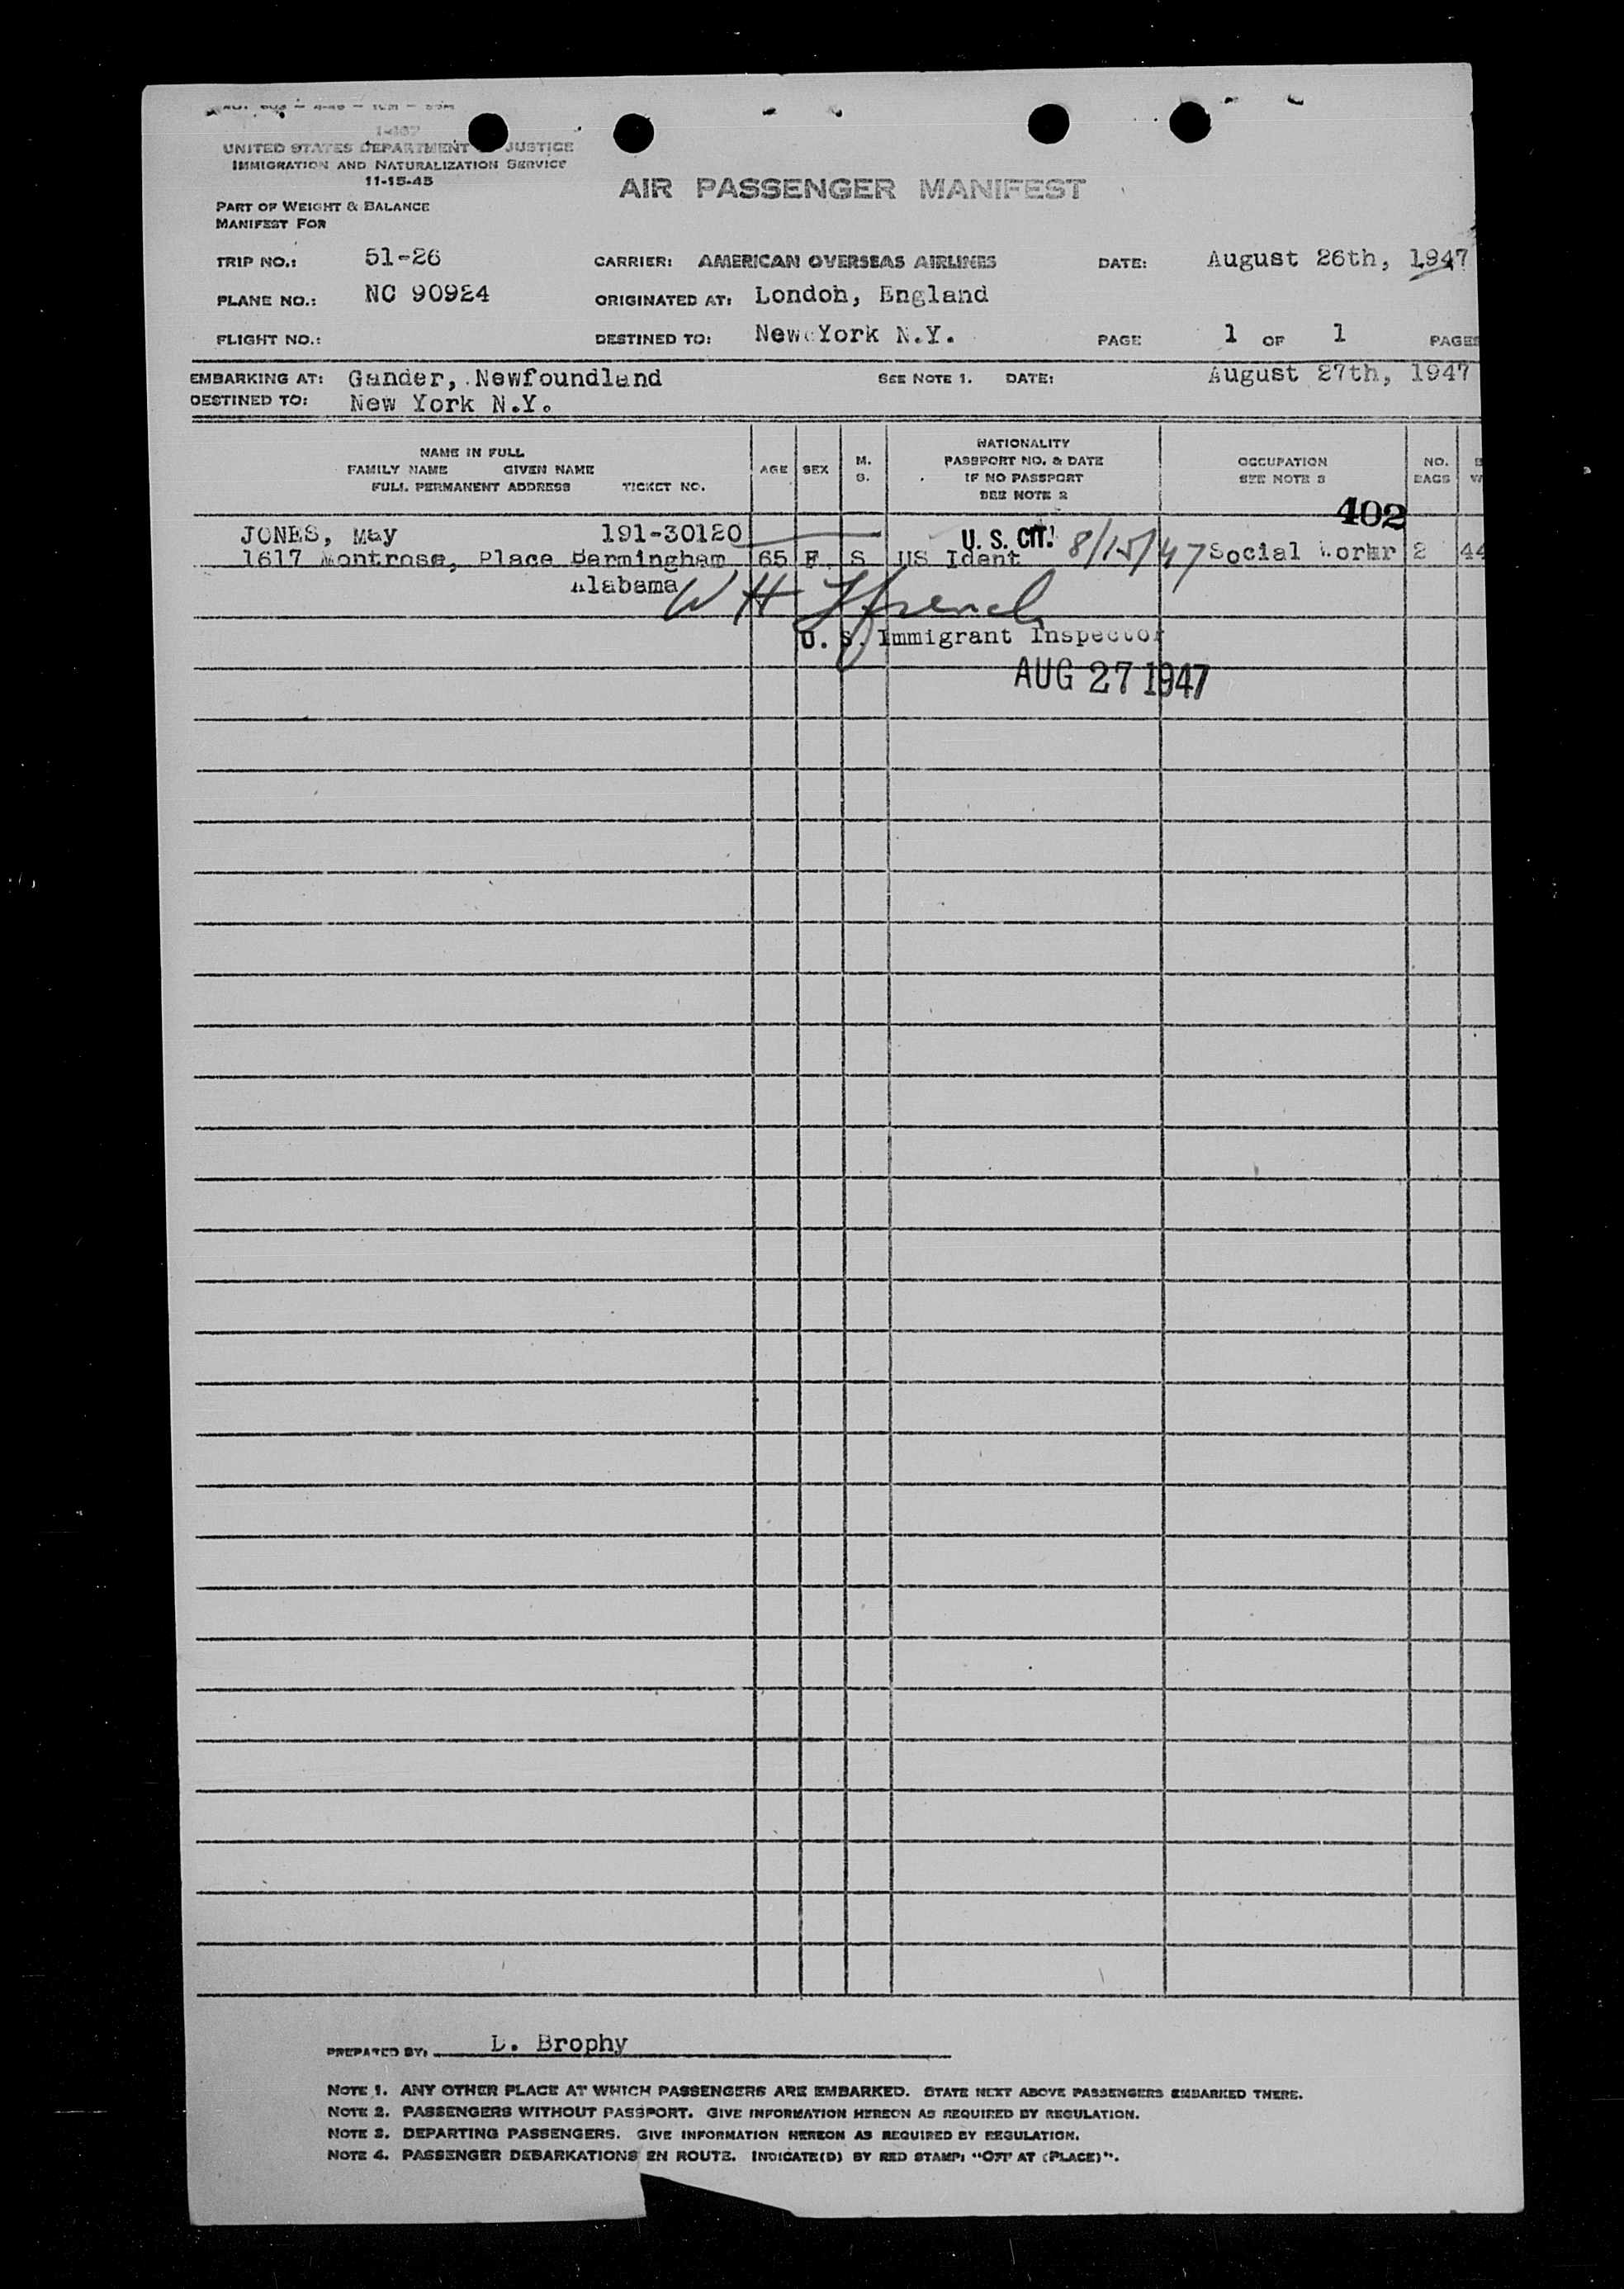 UNITED STATES DEPARTMENT JUSTICE
IMMIGRATION AND NATURALIZATION SERVICE
11-15-45
AIR PASSENGER MANIFEST
PART OF WEIGHT & BALANCE
MANIFEST FOR
TRIP NO.: 51-26 CARRIER: AMERICAN OVERSEAS AIRLINES DATE: August 26th, 1947
PLANE NO.: NC 90924 ORIGINATED AT: London, England
FLIGHT NO.: DESTINED TO: New York N.Y. PAGE 1 OF 1 PAGES
EMBARKING AT: Gander, Newfoundland SEE NOTE 1. DATE: August 27th, 1947
DESTINED TO: New York N.Y.
NAME IN FULL
FAMILY NAME GIVEN NAME
FULL PERMANENT ADDRESS TICKET NO.
AGE SEX M.
S.
NATIONALITY
PASSPORT NO. & DATE
IF NO PASSPORT
SEE NOTE 2
OCCUPATION
SEE NOTE 3
NO.
BAGS
402
JONES, May 191-30120 U. S. CIT. 8/15/47
1617 Montrose, Place Bermingham 65 F S US Ident Social Workr 2 44
Alabama
W H French
U. S. Immigrant Inspector
AUG 27 1947
PREPARED BY: D. Brophy
NOTE 1. ANY OTHER PLACE AT WHICH PASSENGERS ARE EMBARKED. STATE NEXT ABOVE PASSENGERS EMBARKED THERE.
NOTE 2. PASSENGERS WITHOUT PASSPORT. GIVE INFORMATION HEREON AS REQUIRED BY REGULATION.
NOTE 3. DEPARTING PASSENGERS. GIVE INFORMATION HEREON AS REQUIRED BY REGULATION.
NOTE 4. PASSENGER DEBARKATIONS EN ROUTE. INDICATE(D) BY RED STAMP: "OFF AT (PLACE)".